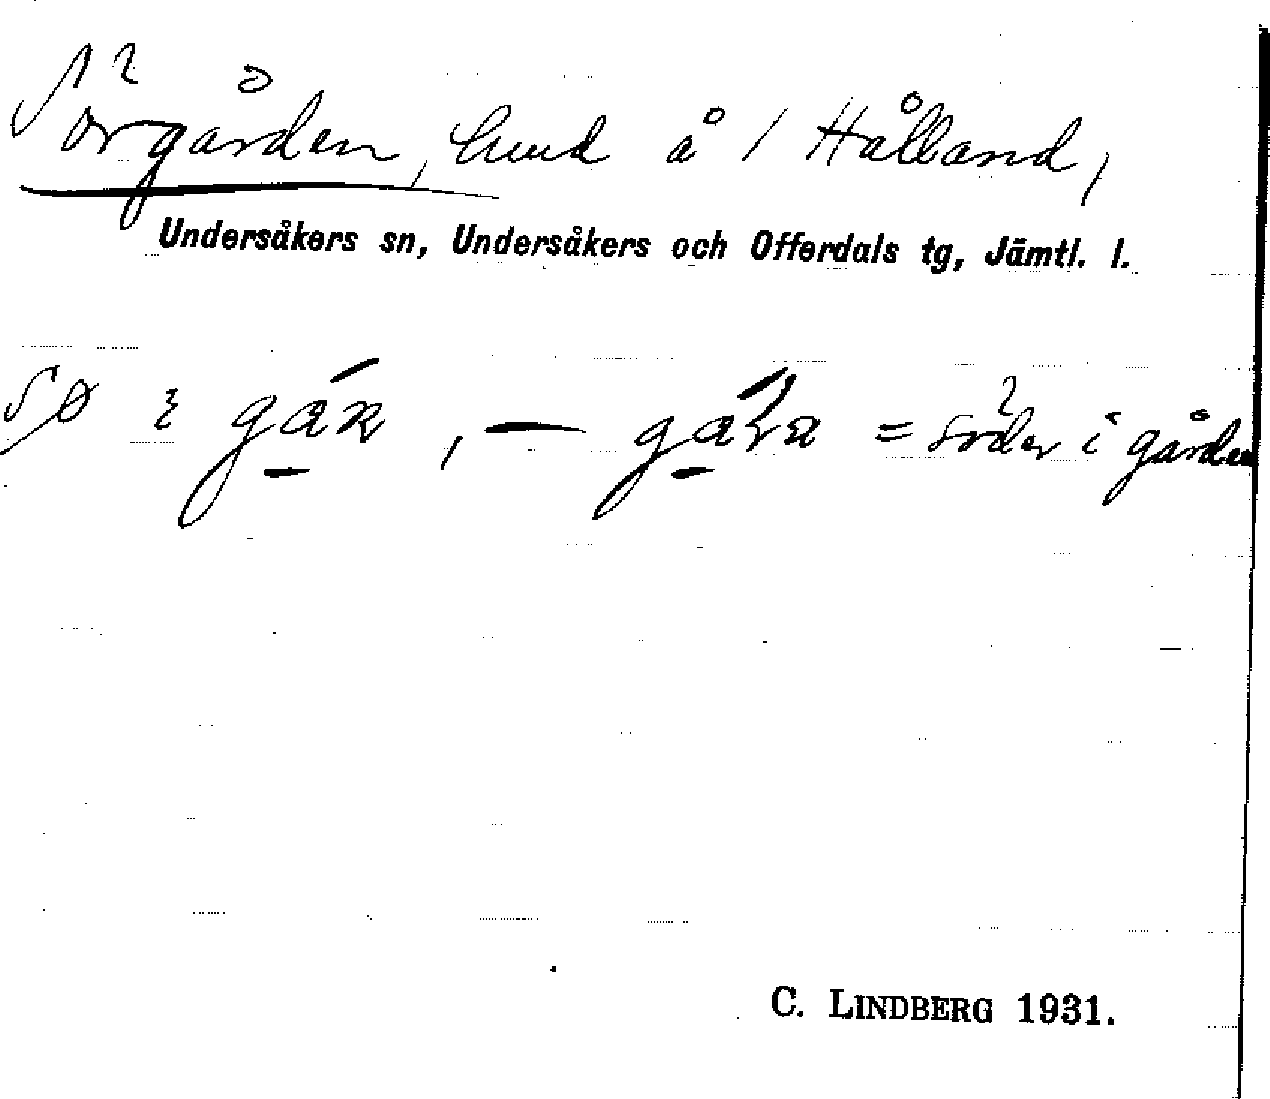 Sörgården, hmd å 1 Hålland,
Undersåkers sn, Undersåkers och Offerdals tg, Jämtl. l.
= söder i gården
C. LINDBERG 1931.